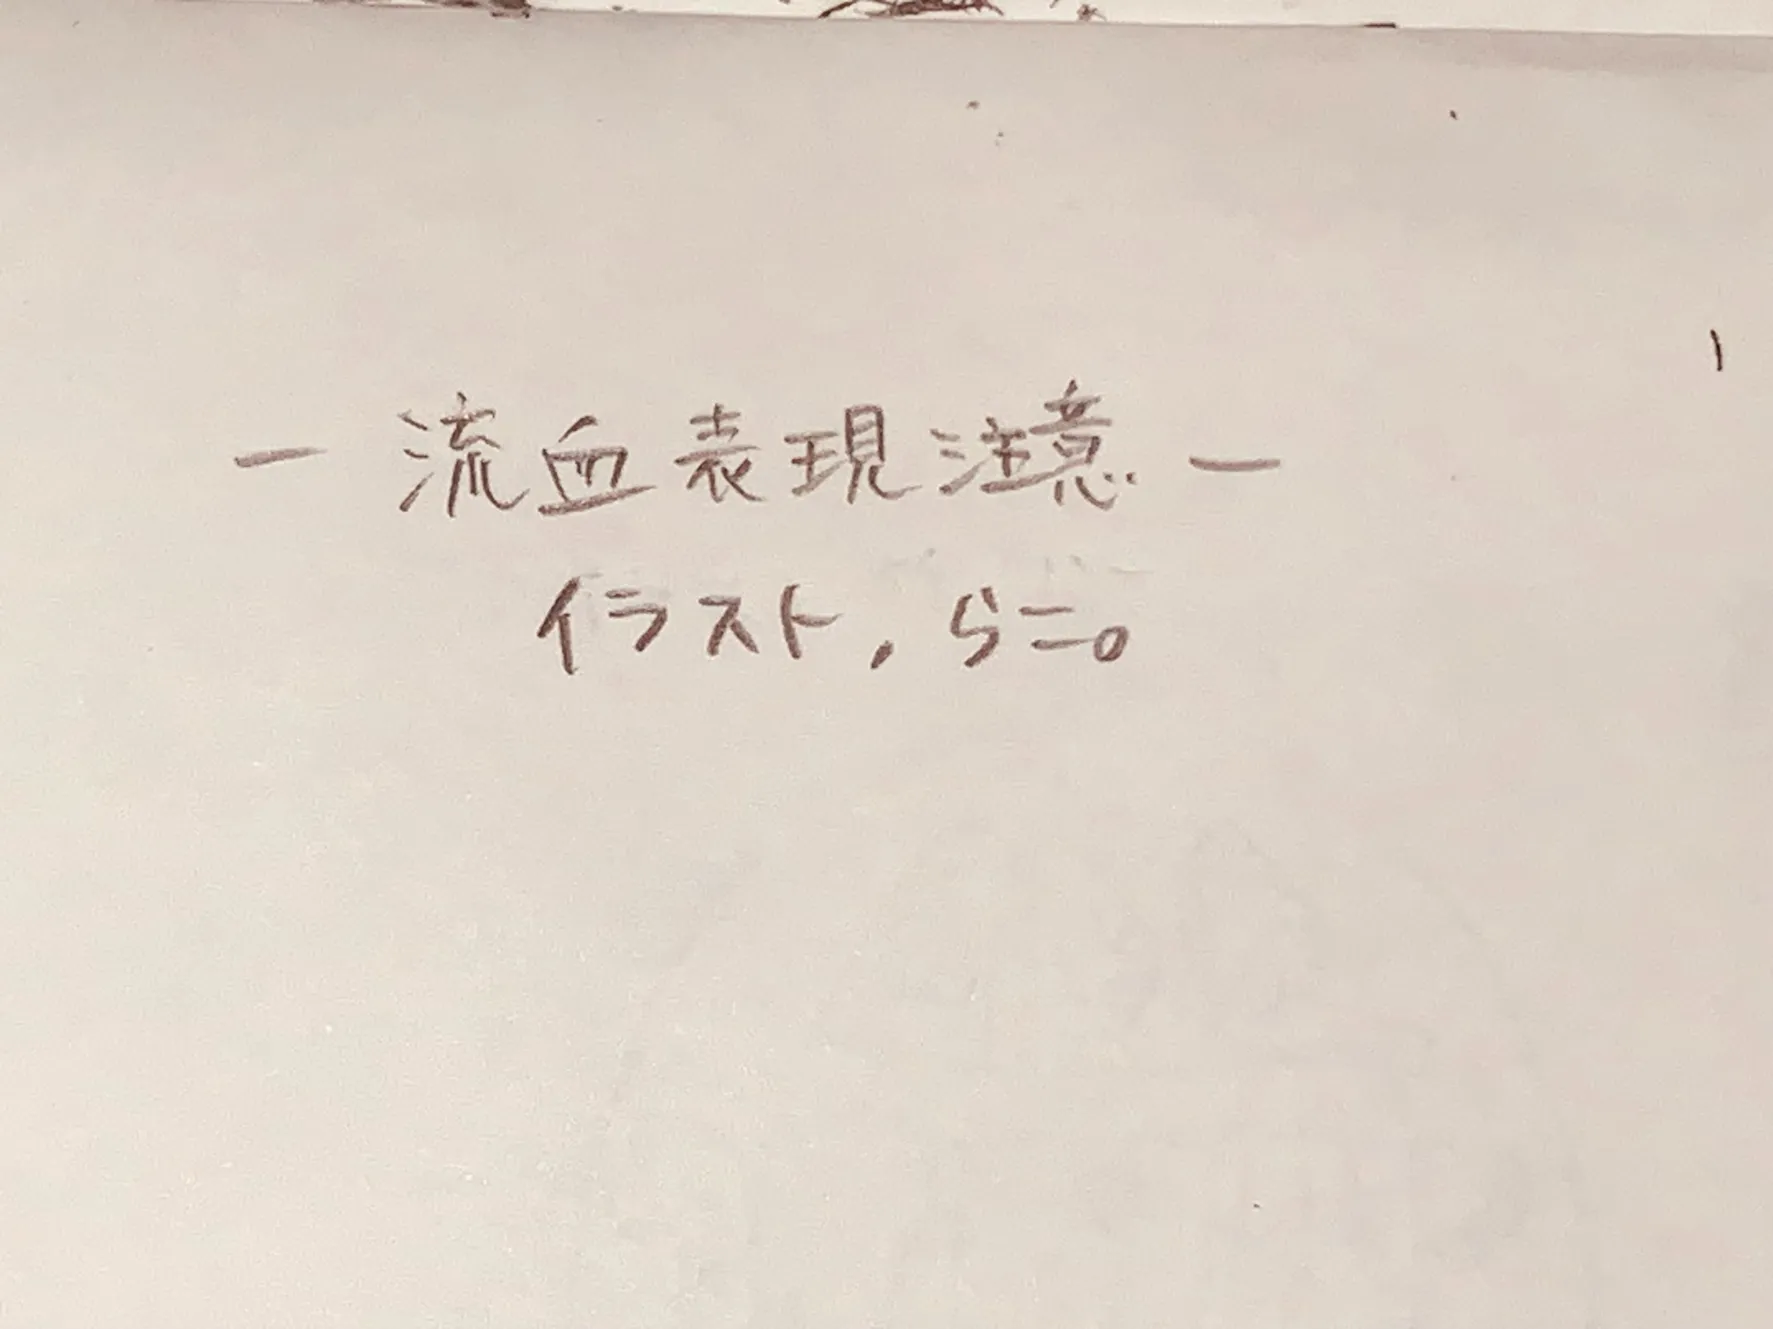 ー流血表現注意ー
イラスト,らニ。